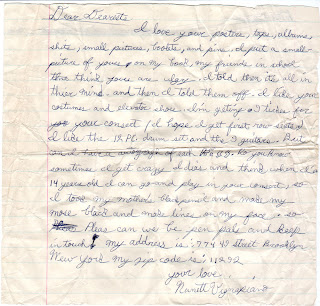 Dear Dearests
I love your posters, tape, albums,
shits, small pictures, bootes, and pins. I put a small
picture of yours on my book my friends in school
there think yours are ugly. I told then it's all in
thier mind. and then I told them off. I like your
costumes and elevator shoes. I'm geting a ticket for
your consent (I hope I get first row seats)
I like the 12 PC. drum set and the 3 guitars. But
sometimes I get crazy I dias and when I'm a
14 years old I can go and play in your consent, so
I took my mother's black pencil and made my
more black and made lines on my face so
Please can we be pen pals and keep
in touch my address is: 774 42 street Brooklyn
New York my zip code is: 11232
your love,